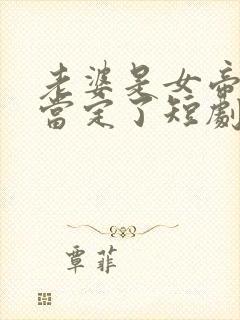 老婆是女帝
當定了短劇
覃菲